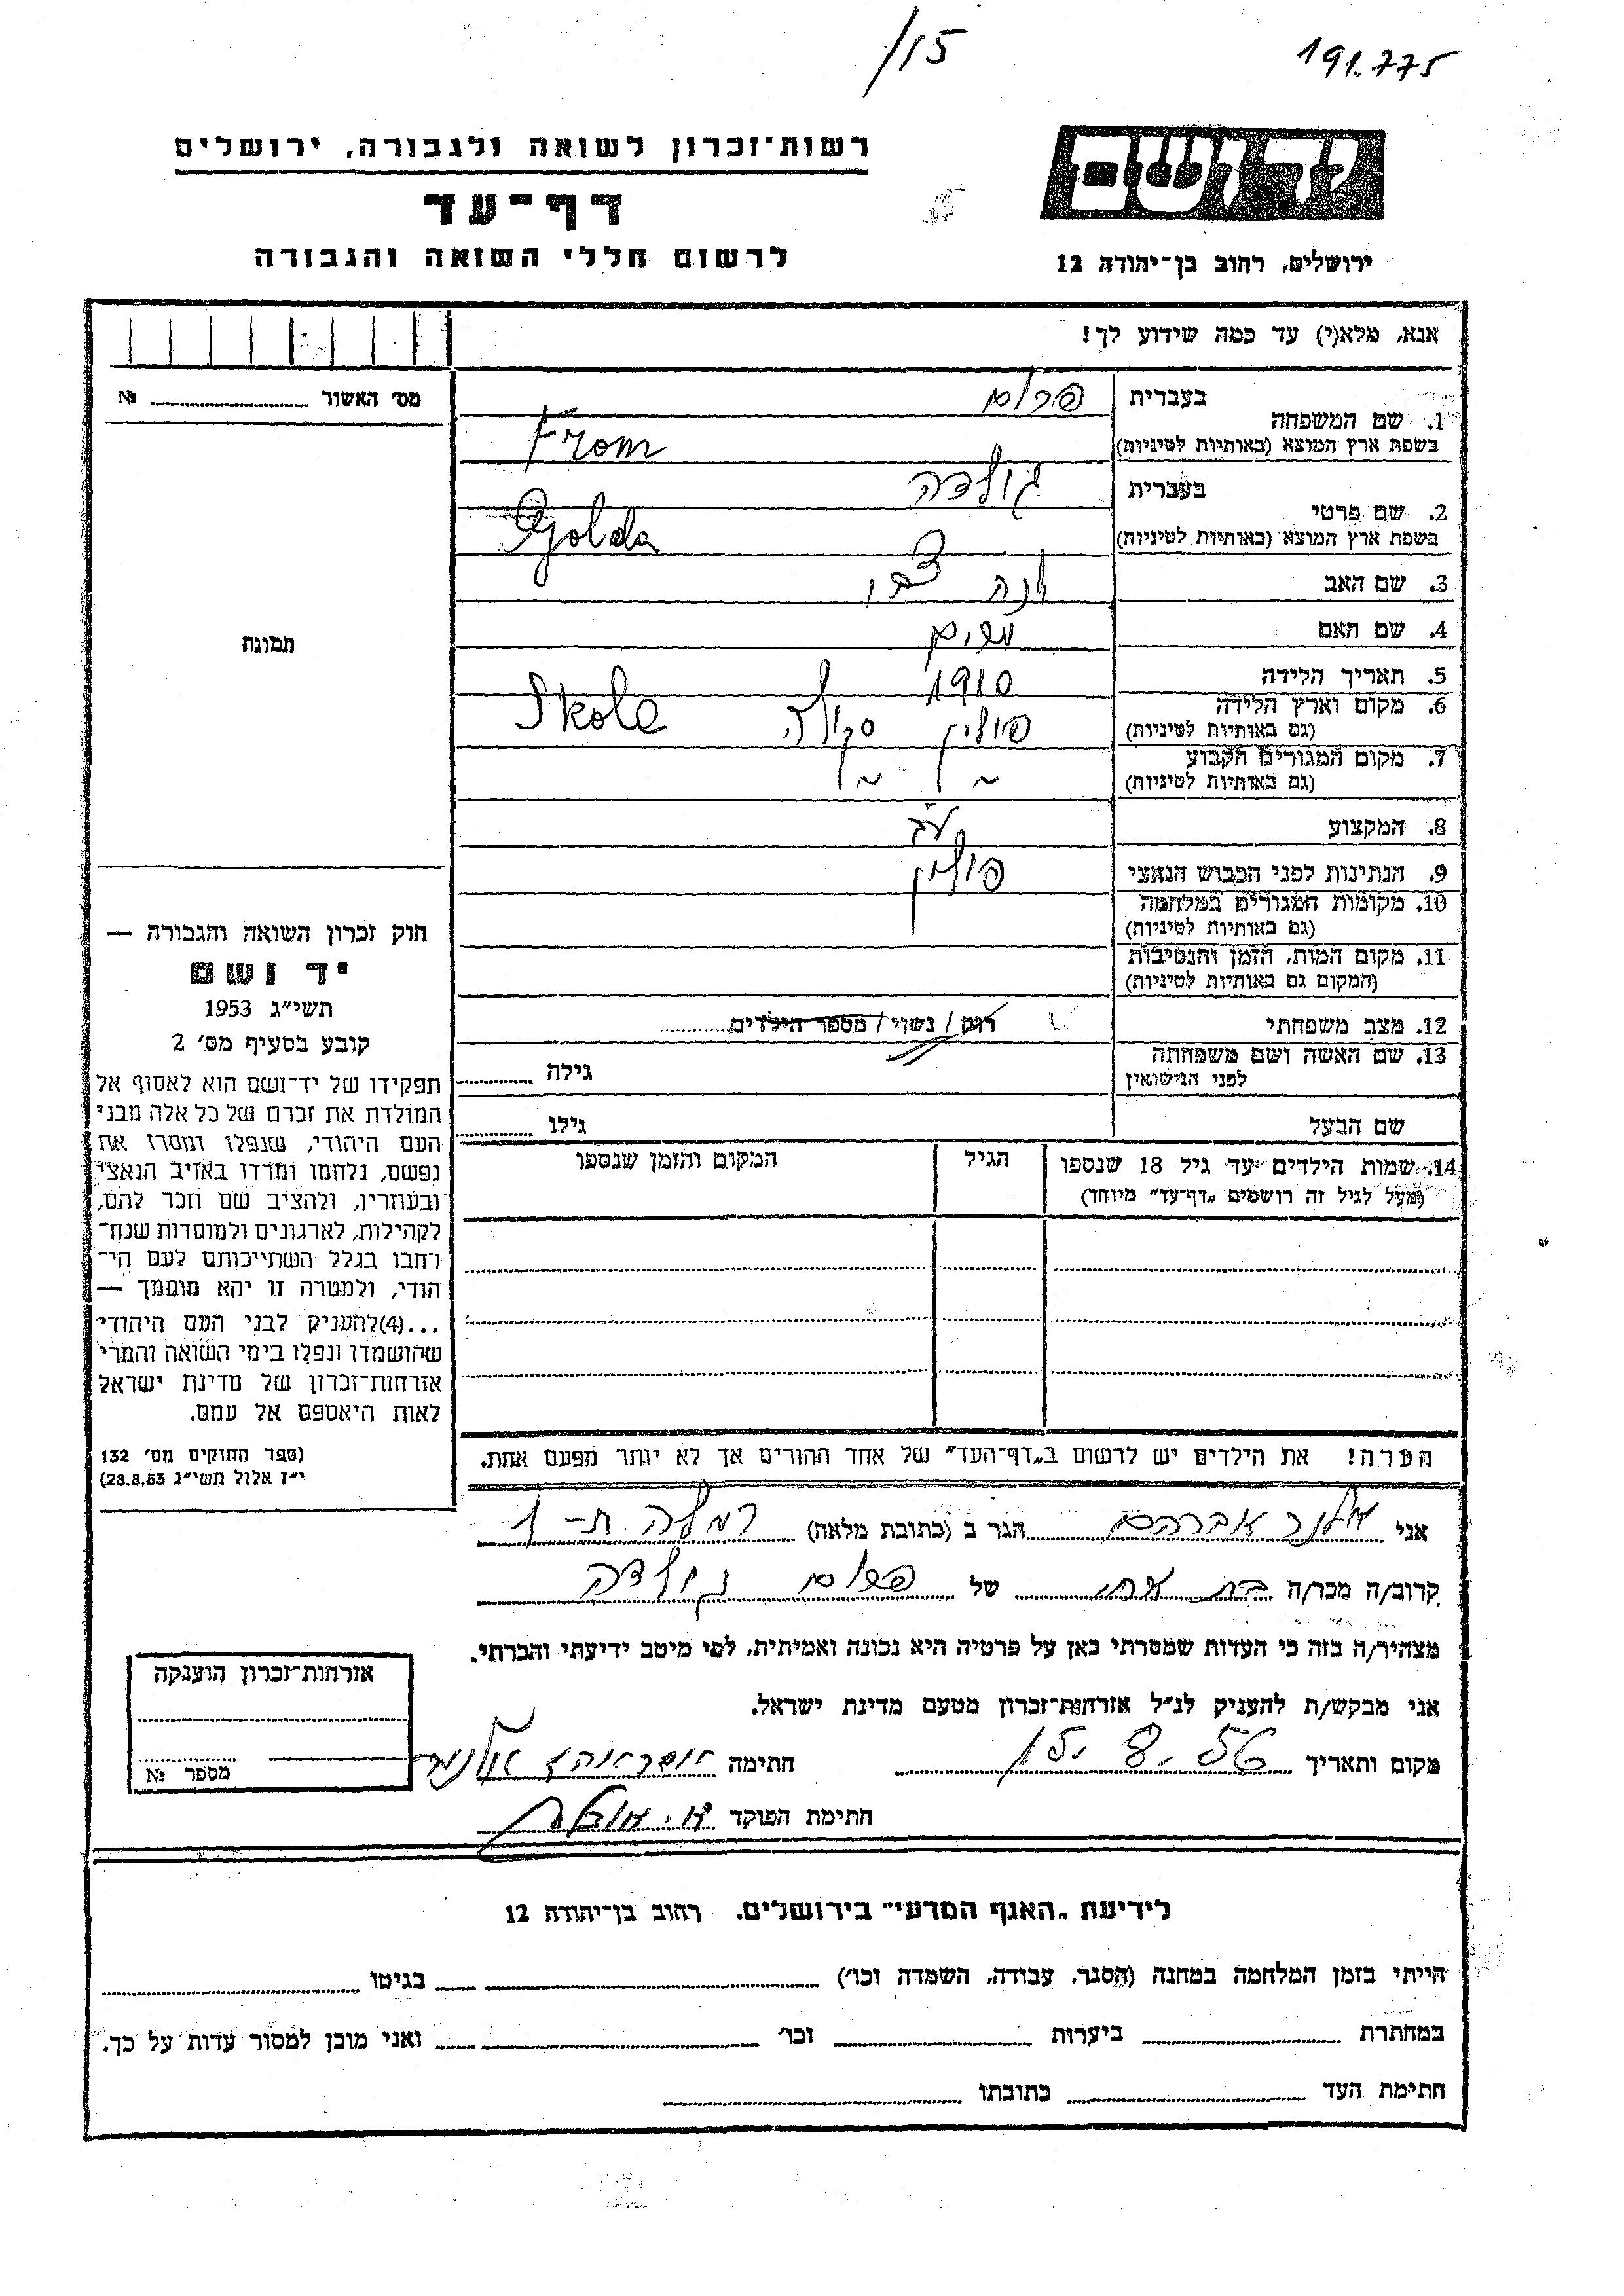 /15
191.775
רשות־זכרון לשואה ולגבורה, ירושלים
דף־עד
לרשום חללי השואה והגבורה
יד ושם
ירושלים, רחוב בן־יהודה 12
אנא, מלא(י) עד כמה שידוע לך!
מס׳ האשור № 
בעברית פרום
1. שם המשפחה
בשפת ארץ המוצא (באותיות לטיניות) From
בעברית גולדה
2. שם פרטי
בשפת ארץ המוצא (באותיות לטיניות) Golda
3. שם האב יונה צבי
4. שם האם מרים
5. תאריך הלידה 1910
6. מקום וארץ הלידה
(גם באותיות לטיניות) פולין סקולה Skole
7. מקום המגורים הקבוע
(גם באותיות לטיניות) ~ ~
8. המקצוע
9. הנתינות לפני הכבוש הנאצי פולין
10. מקומות המגורים במלחמה
(גם באותיות לטיניות)
11. מקום המות, הזמן והנסיבות
(המקום גם באותיות לטיניות)
12. מצב משפחתי רוק / נשוי / מספר הילדים
13. שם האשה ושם משפחתה
לפני הנישואין גילה
שם הבעל גילו
14. שמות הילדים עד גיל 18 שנספו הגיל המקום והזמן שנספו
(מעל לגיל זה רושמים „דף־עד״ מיוחד)
הערה! את הילדים יש לרשום ב„דף־העד״ של אחד ההורים אך לא יותר מפעם אחת.
תמונה
חוק זכרון השואה והגבורה —
יד ושם
תשי״ג 1953
קובע בסעיף מס׳ 2
תפקידו של יד־ושם הוא לאסוף אל
המולדת את זכרם של כל אלה מבני
העם היהודי, שנפלו ומסרו את
נפשם, נלחמו ומרדו באויב הנאצי
ובעוזריו, ולהציב שם וזכר להם,
לקהילות, לארגונים ולמוסדות שנח־
רחבו בגלל השתייכותם לעם הי־
הודי, ולמטרה זו יהא מוסמך —
...(4)להעניק לבני העם היהודי
שהושמדו ונפלו בימי השואה והמרי
אזרחות־זכרון של מדינת ישראל
לאות היאספם אל עמם.
(ספר החוקים מס׳ 132
י״ז אלול תשי״ג 28.8.53)
אני אברהם הגר ב (כתובת מלאה) רמלה
קרוב/ה מכר/ה בת של פרום גולדה
מצהיר/ה בזה כי העדות שמסרתי כאן על פרטיה היא נכונה ואמיתית, לפי מיטב ידיעתי והכרתי.
אני מבקש/ת להעניק לנ״ל אזרחות־זכרון מטעם מדינת ישראל.
מקום ותאריך 15.8.56 חתימה
חתימת הפוקד
אזרחות־זכרון הוענקה
מספר №
לידיעת „האגף המדעי״ בירושלים. רחוב בן־יהודה 12
הייתי בזמן המלחמה במחנה (הסגר, עבודה, השמדה וכו׳) בגיטו
במחתרת ביערות וכו׳ ואני מוכן למסור עדות על כך.
חתימת העד כתובתו